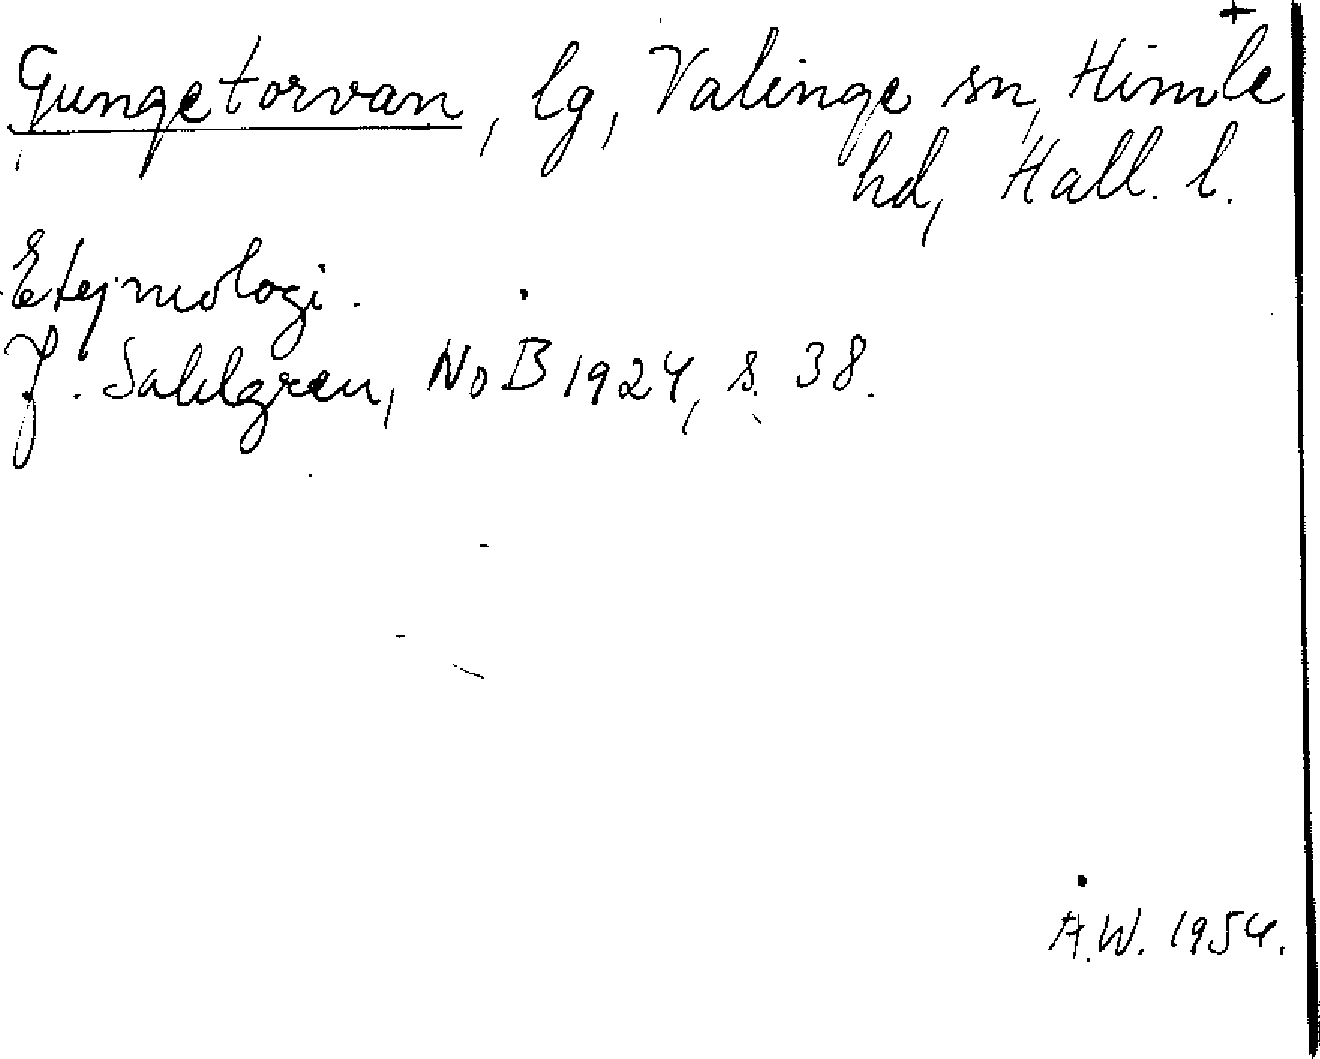 +
Gungetorvan, lg, Valinge sn, Himle
hd, Hall. l.
Etymologi.
J. Sahlgren, NoB 1924, s. 38.
A.W. 1954.